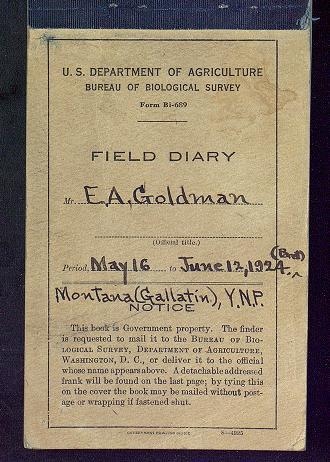 U. S. DEPARTMENT OF AGRICULTURE
BUREAU OF BIOLOGICAL SURVEY
Form Bi-689
FIELD DIARY
Mr. E.A. Goldman
(Official title.)
(Bird)
Period, May 16 to June 12, 1924.
Montana (Gallatin), Y.N.P.
NOTICE
This book is Government property. The finder
is requested to mail it to the BUREAU OF BIO-
LOGICAL SURVEY, DEPARTMENT OF AGRICULTURE,
WASHINGTON, D. C., or deliver it to the official
whose name appears above. A detachable addressed
frank will be found on the last page; by tying this
on the cover the book may be mailed without post-
age or wrapping if fastened shut.
GOVERNMENT PRINTING OFFICE